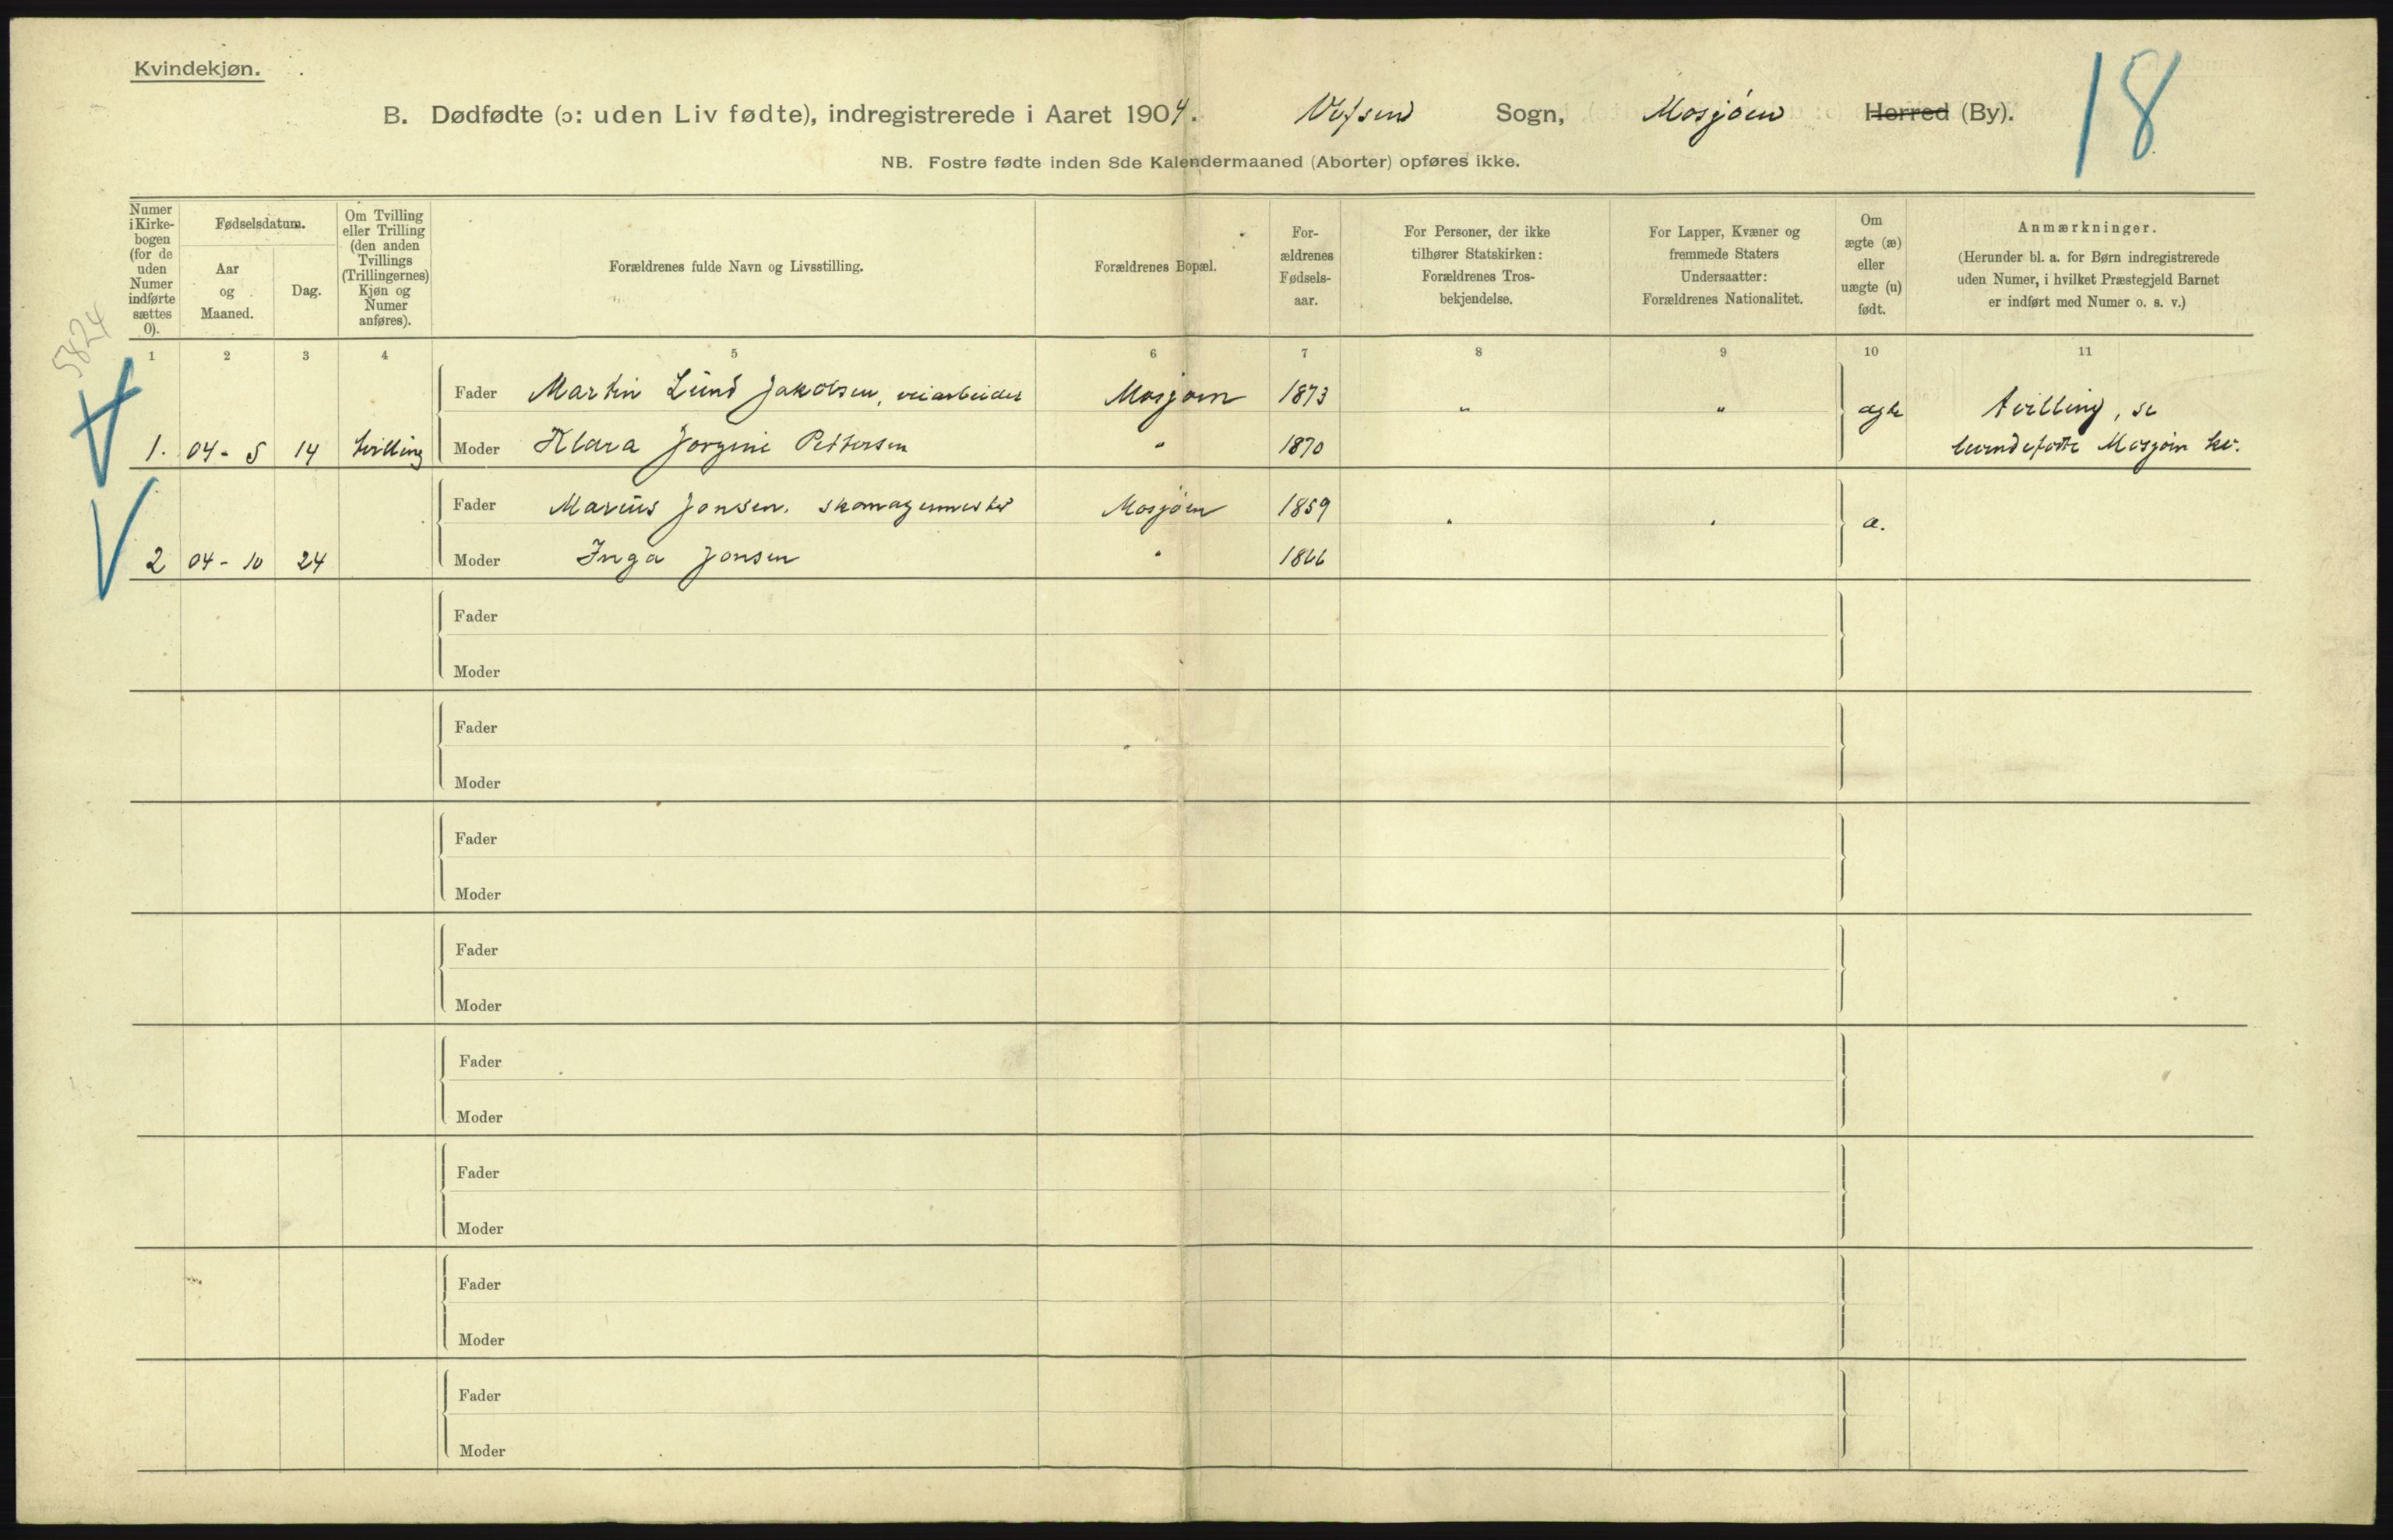 Kvindekjøn.
18
B. Dødfødte (ɔ: uden Liv fødte), indregistrerede i Aaret 1904. Vefsen Sogn, Mosjøen Herred (By).
NB. Fostre fødte inden 8de Kalendermaaned (Aborter) opføres ikke.
Numer
i Kirke-
bogen
(for de
uden
Numer
indførte
sættes
0).
Fødselsdatum.
Aar
og
Maaned.
Dag.
Om Tvilling
eller Trilling
(den anden
Tvillings
(Trillingernes)
Kjøn og
Numer
anføres).
Forældrenes fulde Navn og Livsstilling.
Forældrenes Bopæl.
For-
ældrenes
Fødsels-
aar.
For Personer, der ikke
tilhører Statskirken:
Forældrenes Tros-
bekjendelse.
For Lapper, Kvæner og
fremmede Staters
Undersaatter:
Forældrenes Nationalitet.
Om
ægte (æ)
eller
uægte (u)
født.
Anmærkninger.
(Herunder bl. a. for Børn indregistrerede
uden Numer, i hvilket Præstegjeld Barnet
er indført med Numer o. s. v.)
5824
1 2 3 4 5 6 7 8 9 10 11
Fader Martin Lund Jakobsen, veiarbeider Mosjøen 1873 " " ægte tvilling, se
1. 04-5 14 tvilling Moder Klara Jørgine Pettersen " 1870 levendefødte Mosjøen kv.
Fader Marius Jonsen, skomagermester Mosjøen 1859 " " æ.
2 04-10 24 Moder Inga Jonsen " 1866
Fader
Moder
Fader
Moder
Fader
Moder
Fader
Moder
Fader
Moder
Fader
Moder
Fader
Moder
Fader
Moder